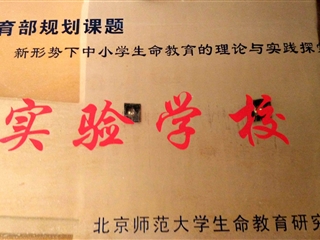 育部规划课题
新形势下中小学生命教育的理论与实践探
实验学校
北京师范大学生命教育研究